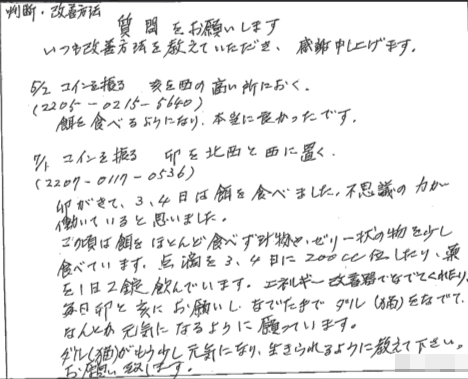 判断・改善方法
質問をお願いします
いつも改善方法を教えていただき、感謝申し上げます。
5/2 コインを振る 亥を西の高い所におく。
(2205-0215-5640)
餌を食べるようになり、本当に良かったです。
7/1 コインを振る 卯を北西と西に置く。
(2207-0117-0536)
卯がきて、3、4日は餌を食べました。不思議の力が
働いていると思いました。
この頃は餌をほとんど食べず汁物と、ゼリー状の物を少し
食べています。点滴を3、4日に200cc位したり、薬
を1日2錠飲んでいます。エネルギー改善器でなでてくれたり、
毎日卯と亥にお願いし、なでたまでダル(猫)をなでて、
なんとか元気になるように願っています。
ダル(猫)がもう少し元気になり、生きられるように教えて下さい。
お願い致します。